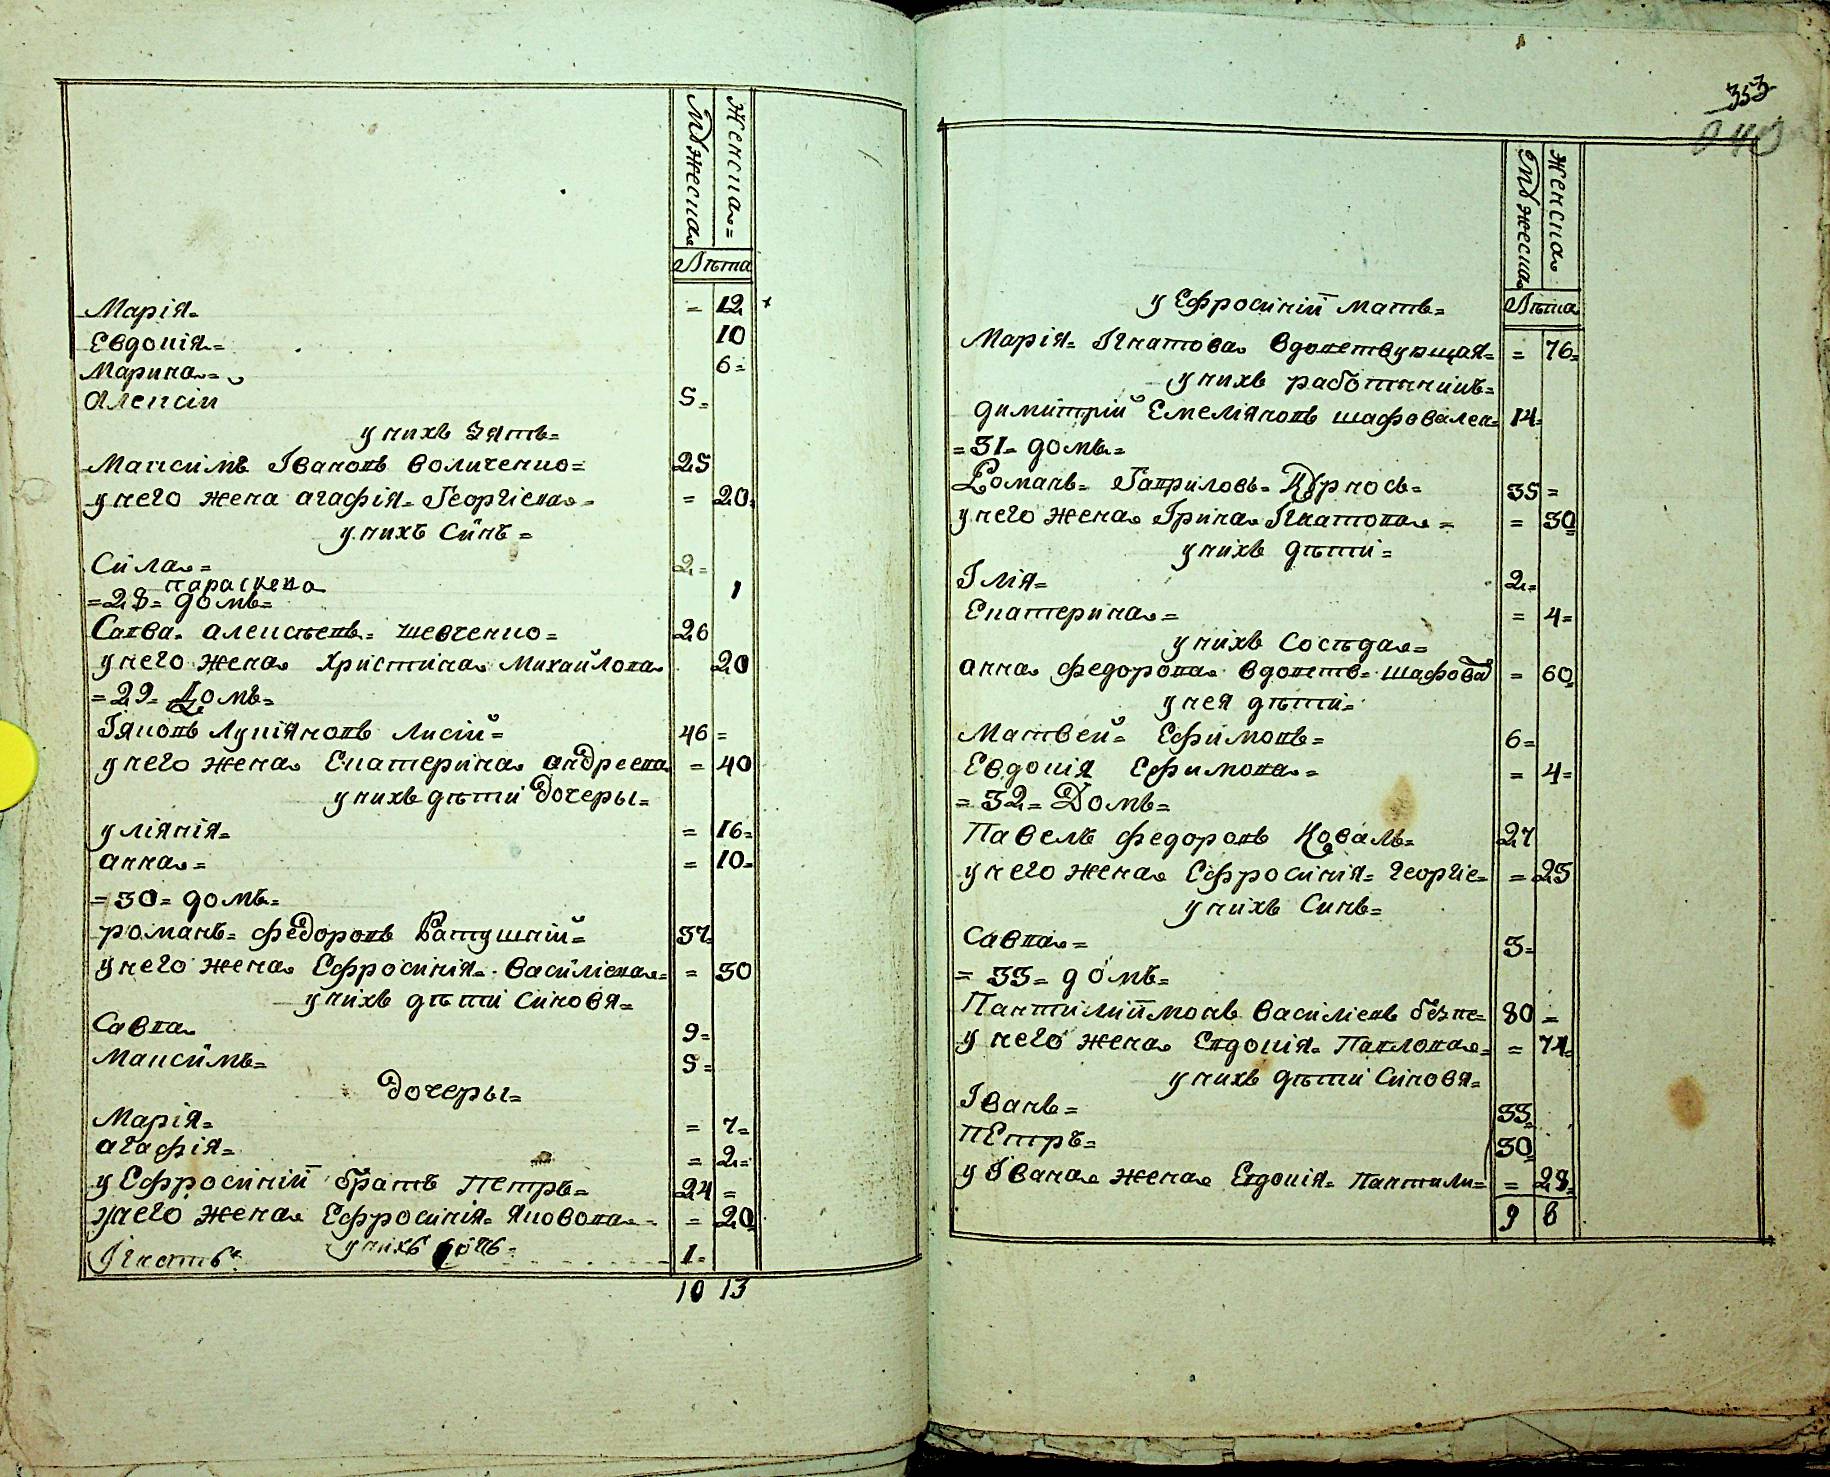 Мужеска
Женска=
Лѣта
Марія= = 12
Евдокія= 10
Марина= 6=
Алексій 5=
у нихъ зять=
Максимъ Івановъ Воличенко= 25
у него жена Агафія= Георгіева= = 20=
у нихъ Синъ=
Сила= 2=
Параскева 1
=28= домъ=
Савва= Алексѣевъ= Шевченко= 26
у него жена Христина Михайлова 20
=29= Домъ=
Іяковъ Лукіяновъ Лисій= 46 =
у него жена Екатерина Андреева = 40
у нихъ дѣти дочеры=
Уліянія= = 16=
Анна= = 10=
=30= домъ=
Романъ= Федоровъ Ратушній= 37=
у него жена Ефросинія= Василіева= = 30
у нихъ дѣти Синовя=
Савва 9=
Максимъ= 5=
дочеры=
Марія= = 7=
Агафія= = 2=
у Ефросиніи братъ Петръ= 24 =
у него жена Ефросинія= Яковова= = 20
у нихъ
Ігнатъ 1=
10 13
353
Мужеска
Женска
Лѣта
у Ефросиніи мать=
Марія= Ігнатова вдовствующая= = 76=
у нихъ работникъ=
Димитрій Емеліяновъ Шафовален= 14=
=31= домъ=
Романъ= Гавриловъ= Курносъ= 35 =
у него жена Ірина Ігнатова= = 30
у нихъ дѣти=
Ілія= 2=
Екатерина= = 4=
у нихъ Сосѣда=
Анна Федорова вдовств= Шафова = 60
у нея дѣти=
Матвей= Ефимовъ= 6=
Евдокія Ефимова= = 4=
=32= Домъ=
Павелъ Федоровъ Коваль= 27
у него жена Ефросинія= Георгіе= = 25
у нихъ Синъ=
Савва= 3=
=33= домъ=
Пантилиимонъ Василіевъ безпе= 80 =
у него жена Евдокія= Павлова= = 74=
у нихъ дѣти Синовя=
Іванъ= 33
Петръ= 30
у Івана жена Евдокія= Пантили= = 28=
9 8